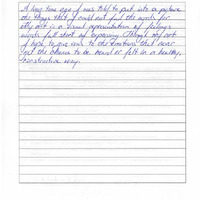 A long time ago I was told to put into a picture
the things that I could not find the words for
My art is a visual representation of feelings
words fall short of expressing. Through my art
I hope to give voice to the emotions that never
got the chance to be heard or felt in a healthy,
constructive way.